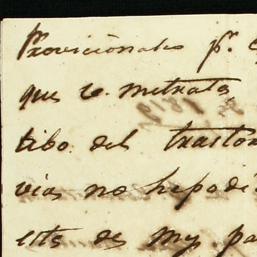 Provicionales pr.
que v. metrata
tibo del trastor
vias no hepodi
este de my pa